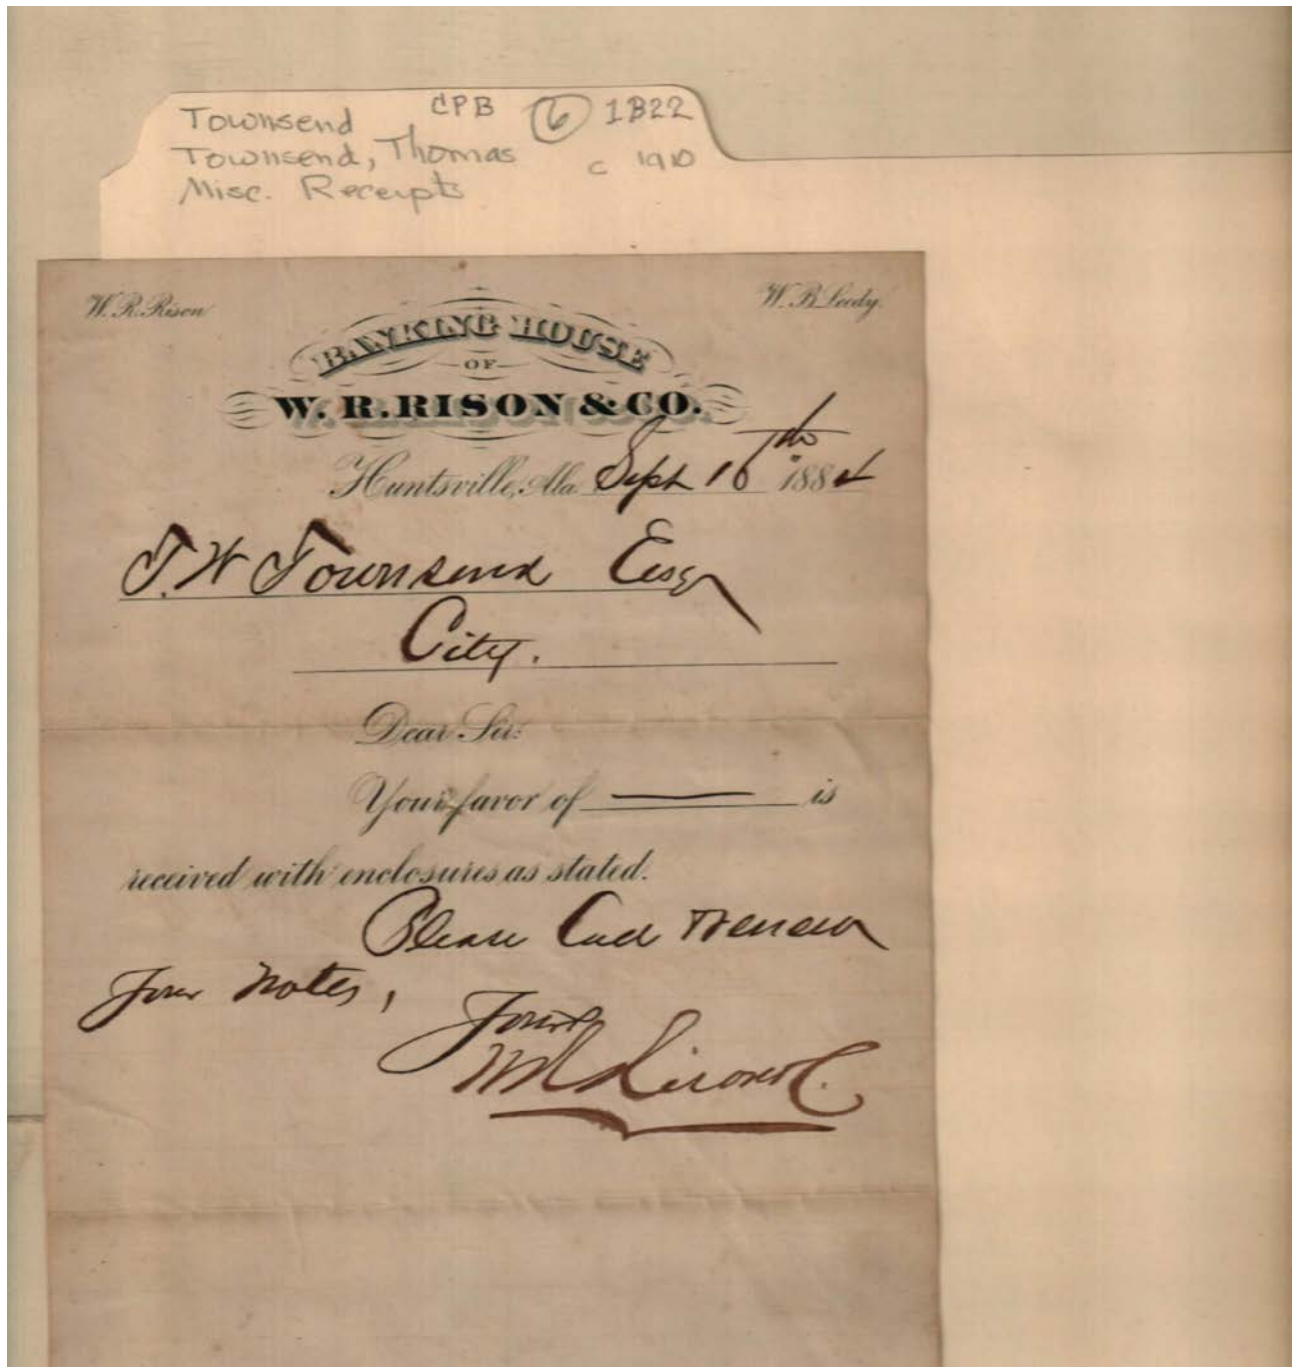 Townsend CPB 6 1B22
Townsend, Thomas c 1910
Misc. Receipts
W. R. Rison W. B. Leedy.
BANKING HOUSE
OF
W. R. RISON & CO.
Huntsville, Ala. Sept 16th 1884
T. W Townsend Esq
City.
Dear Sir:
Your favor of is
received with enclosures as stated.
Please Call & renew
your notes,
Yours
W R Rison & Co.